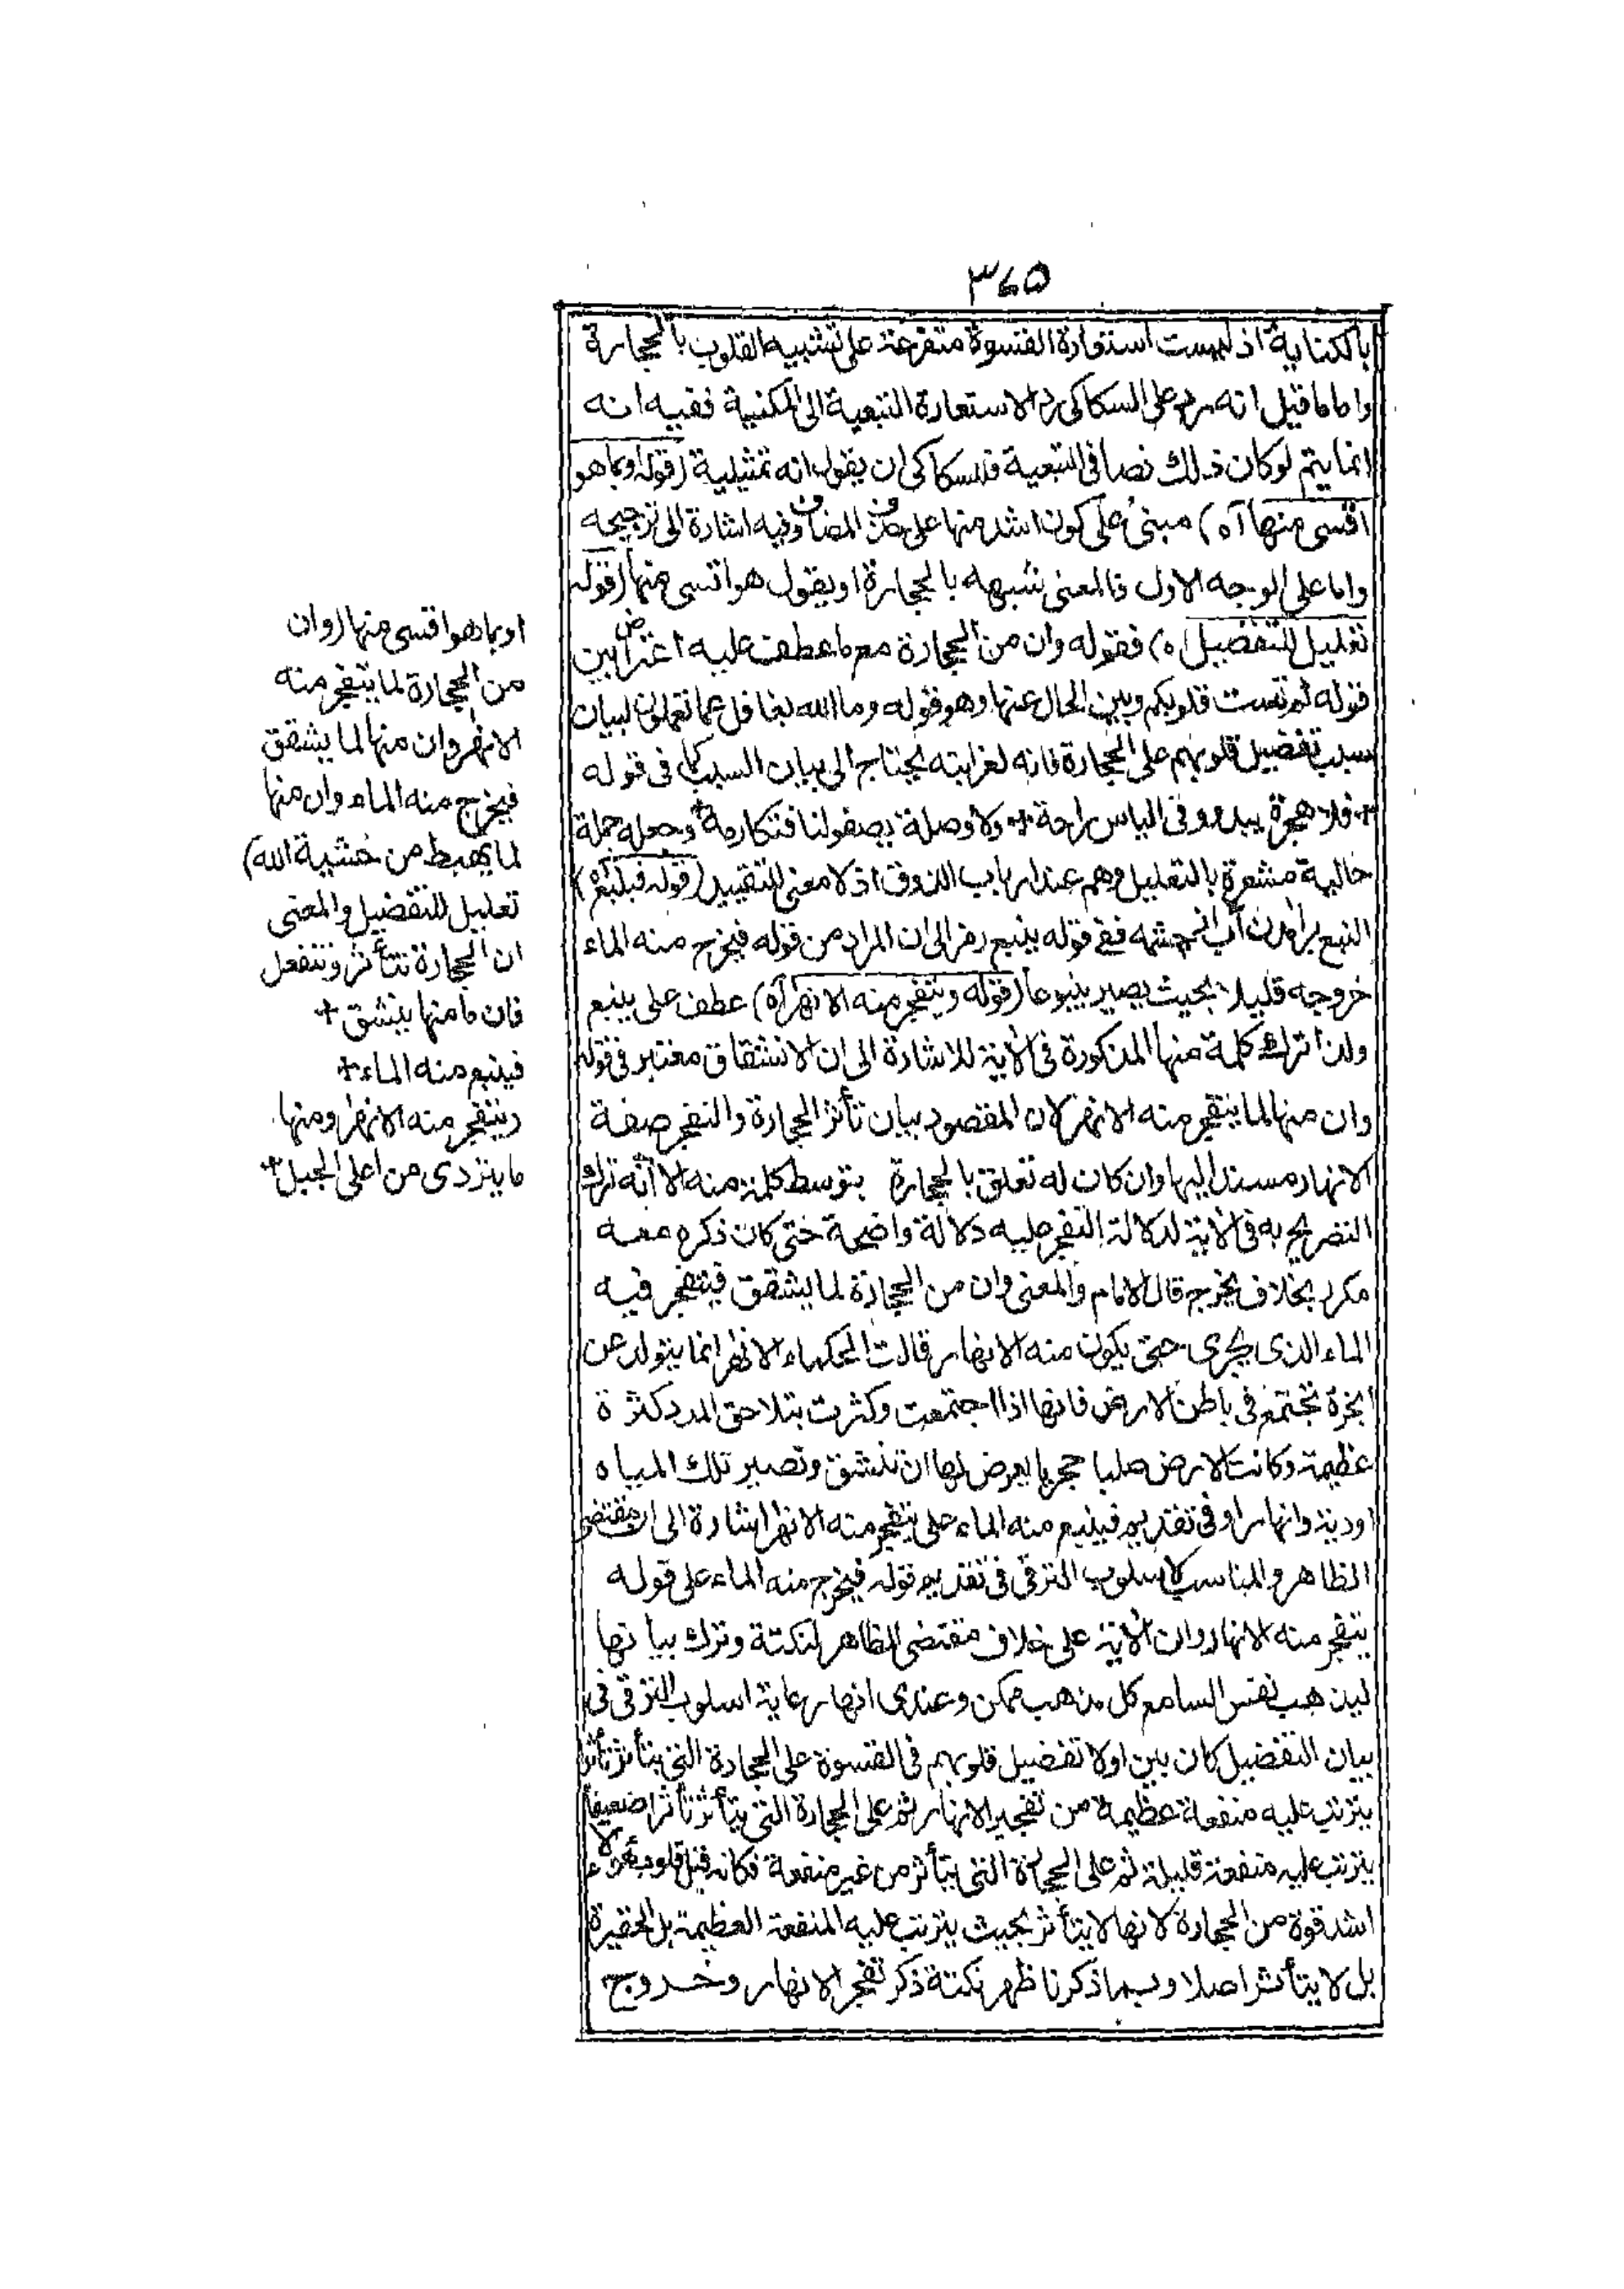 ٣٤٥
بالكناية اذ ليست استعارة القسوة متفرعة على تشبيه القلوب بالحجارة
واما ما قيل انه رد على السكاكى رد الاستعارة التبعية الى المكنية ففيه انه
انما يتم لو كان ذلك نصا فى التبعية فللسكاكى ان يقول انه تمثيلية (قوله او بما هو
اقسى منها آه) مبنى على كون اشد منها على حذف المضاف وفيه اشارة الى ترجيحه
واما على الوجه الاول فالمعنى شبهه بالحجارة او يقول هو اقسى منها (قوله
تعليل للتفضيل اه) فقوله وان من الحجارة مع ما عطف عليه اعتراض بين
قوله ثم قست قلوبكم وبين الحال عنها وهو قوله وما الله بغافل عما تعملون لبيان
سبب تفضيل قلوبهم على الحجارة فانه لغرابته يحتاج الى بيان السبب كما فى قوله
* فلا هجرة يبدو وفى الياس راحة * ولا وصلة يصفو لنا فتكارمه * وجعله جملة
حالية مشعرة بالتعليل وهم عند ارباب الذوق اذ لا معنى للتقييد (قوله فينبع آه)
النبع برآمدن آب از چشمه ففى قوله ينبع رمز الى ان المراد من قوله فيخرج منه الماء
خروجه قليلا بحيث يصير ينبوعا (قوله ويتفجر منه الانهر آه) عطف على ينبع
ولذا ترك كلمة منها المذكورة فى الآية للاشارة الى ان الانشقاق معتبر فى قوله
وان منها لما يتفجر منه الانهر لان المقصود بيان تأثر الحجارة والتفجر صفة
الانهار مسند اليها وان كان له تعلق بالحجارة بتوسط كلمة منه الا انه ترك
التصريح به فى الآية لدلالة التفجر عليه دلالة واضحة حتى كان ذكره معه
مكرر بخلاف يخرج قال الامام والمعنى وان من الحجارة لما يشقق فيتفجر فيه
الماء الذى يجرى حتى يكون منه الانهار قالت الحكماء الانهر انما يتولد عن
ابخرة تجتمع فى باطن الارض فانها اذا اجتمعت وكثرت بتلاحق المدد كثرة
عظيمة وكانت الارض صلبا حجريا يعرض لها ان تنشق وتصير تلك المياه
اودية وانهارا وفى تقديم فينبع منه الماء على يتفجر منه الانهر اشارة الى ان مقتضى
الظاهر والمناسب لاسلوب الترقى فى تقديم قوله فيخرج منه الماء على قوله
يتفجر منه الانهار وان الآية على خلاف مقتضى الظاهر لنكتة وترك بيانها
ليذهب نفس السامع كل مذهب ممكن وعندى انها رعاية اسلوب الترقى فى
بيان التفضيل كان بين اولا تفضيل قلوبهم فى القسوة على الحجارة التى يتأثر تأثرا
يترتب عليه منفعة عظيمة من تفجير الانهار ثم على الحجارة التى يتأثر تأثرا ضعيفا
يترتب عليه منفعة قليلة ثم على الحجارة التى يتأثر من غير منفعة فكانه قيل قلوب هؤلاء
اشد قوة من الحجارة لانها لا يتأثر بحيث يترتب عليه المنفعة العظيمة بل الحقيرة
بل لا يتأثر اصلا وبما ذكرنا ظهر نكتة ذكر تفجر الانهار وخروج
او بما هو اقسى منها (وان
من الحجارة لما يتفجر منه
الانهر وان منها لما يشقق
فيخرج منه الماء وان منها
لما يهبط من خشية الله)
تعليل للتفضيل والمعنى
ان الحجارة تتأثر وتنفعل
فان ما منها ينشق +
فينبع منه الماء +
ويتفجر منه الانهر ومنها
ما يتردى من اعلى الجبل +